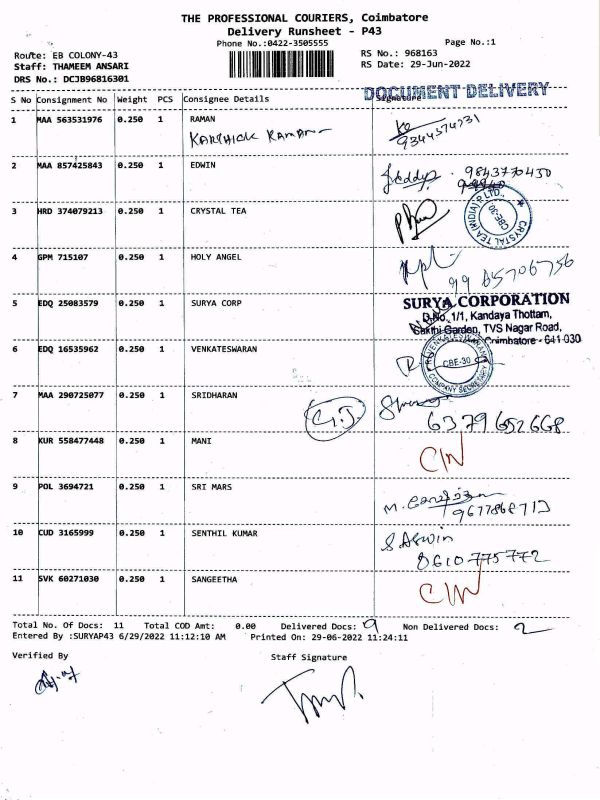 THE PROFESSIONAL COURIERS, Coimbatore
Delivery Runsheet - P43
Phone No.:0422-3505555 Page No.:1
Route: EB COLONY-43 RS No.: 968163
Staff: THAMEEM ANSARI RS Date: 29-Jun-2022
DRS No.: DCJB96816301
DOCUMENT DELIVERY
S No Consignment No Weight PCS Consignee Details Signature
1 MAA 563531976 0.250 1 RAMAN
KARTHICK RAMAN
9344374731
2 MAA 857425843 0.250 1 EDWIN
9843770450
3 HRD 374079213 0.250 1 CRYSTAL TEA
CRYSTAL TEA (INDIA) P. LTD. * CBE-30
4 GPM 715107 0.250 1 HOLY ANGEL
99 65706756
5 EDQ 25083579 0.250 1 SURYA CORP
SURYA CORPORATION
D.No. 1/1, Kandaya Thottam,
Sakthi Garden, TVS Nagar Road,
Coimbatore - 641 030
6 EDQ 16535962 0.250 1 VENKATESWARAN
R. VENKATESWARAN CBE-30 COMPANY SECRETARY
7 MAA 290725077 0.250 1 SRIDHARAN
6379652668
8 KUR 558477448 0.250 1 MANI
CIN
9 POL 3694721 0.250 1 SRI MARS
10 CUD 3165999 0.250 1 SENTHIL KUMAR
S. Aswin
8610775772
11 SVK 60271030 0.250 1 SANGEETHA
CIN
Total No. Of Docs: 11 Total COD Amt: 0.00 Delivered Docs: 9 Non Delivered Docs: 2
Entered By :SURYAP43 6/29/2022 11:12:10 AM Printed On: 29-06-2022 11:24:11
Verified By Staff Signature